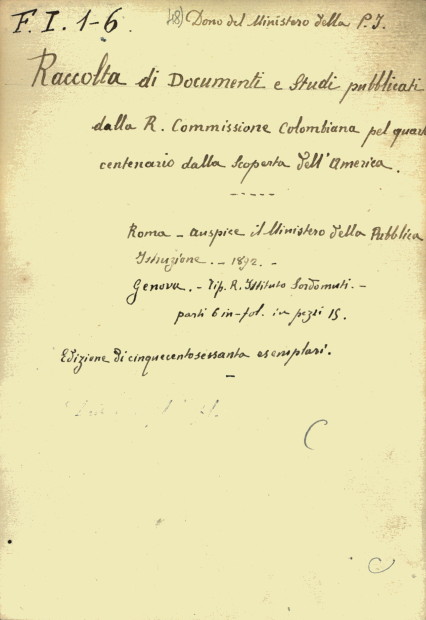 F. I. 1-6. 48) Dono del Ministero della P. I.
Raccolta di Documenti e Studi pubblicati
dalla R. Commissione Colombiana pel quart
centenario dalla Scoperta dell'America.
Roma - auspice il Ministero della Pubblica
Istruzione. - 1892. -
Genova. - Tip. R. Istituto Sordomuti. -
parti 6 in-fol. in pezzi 15.
Edizione di cinquecentosessanta esemplari.
C
C